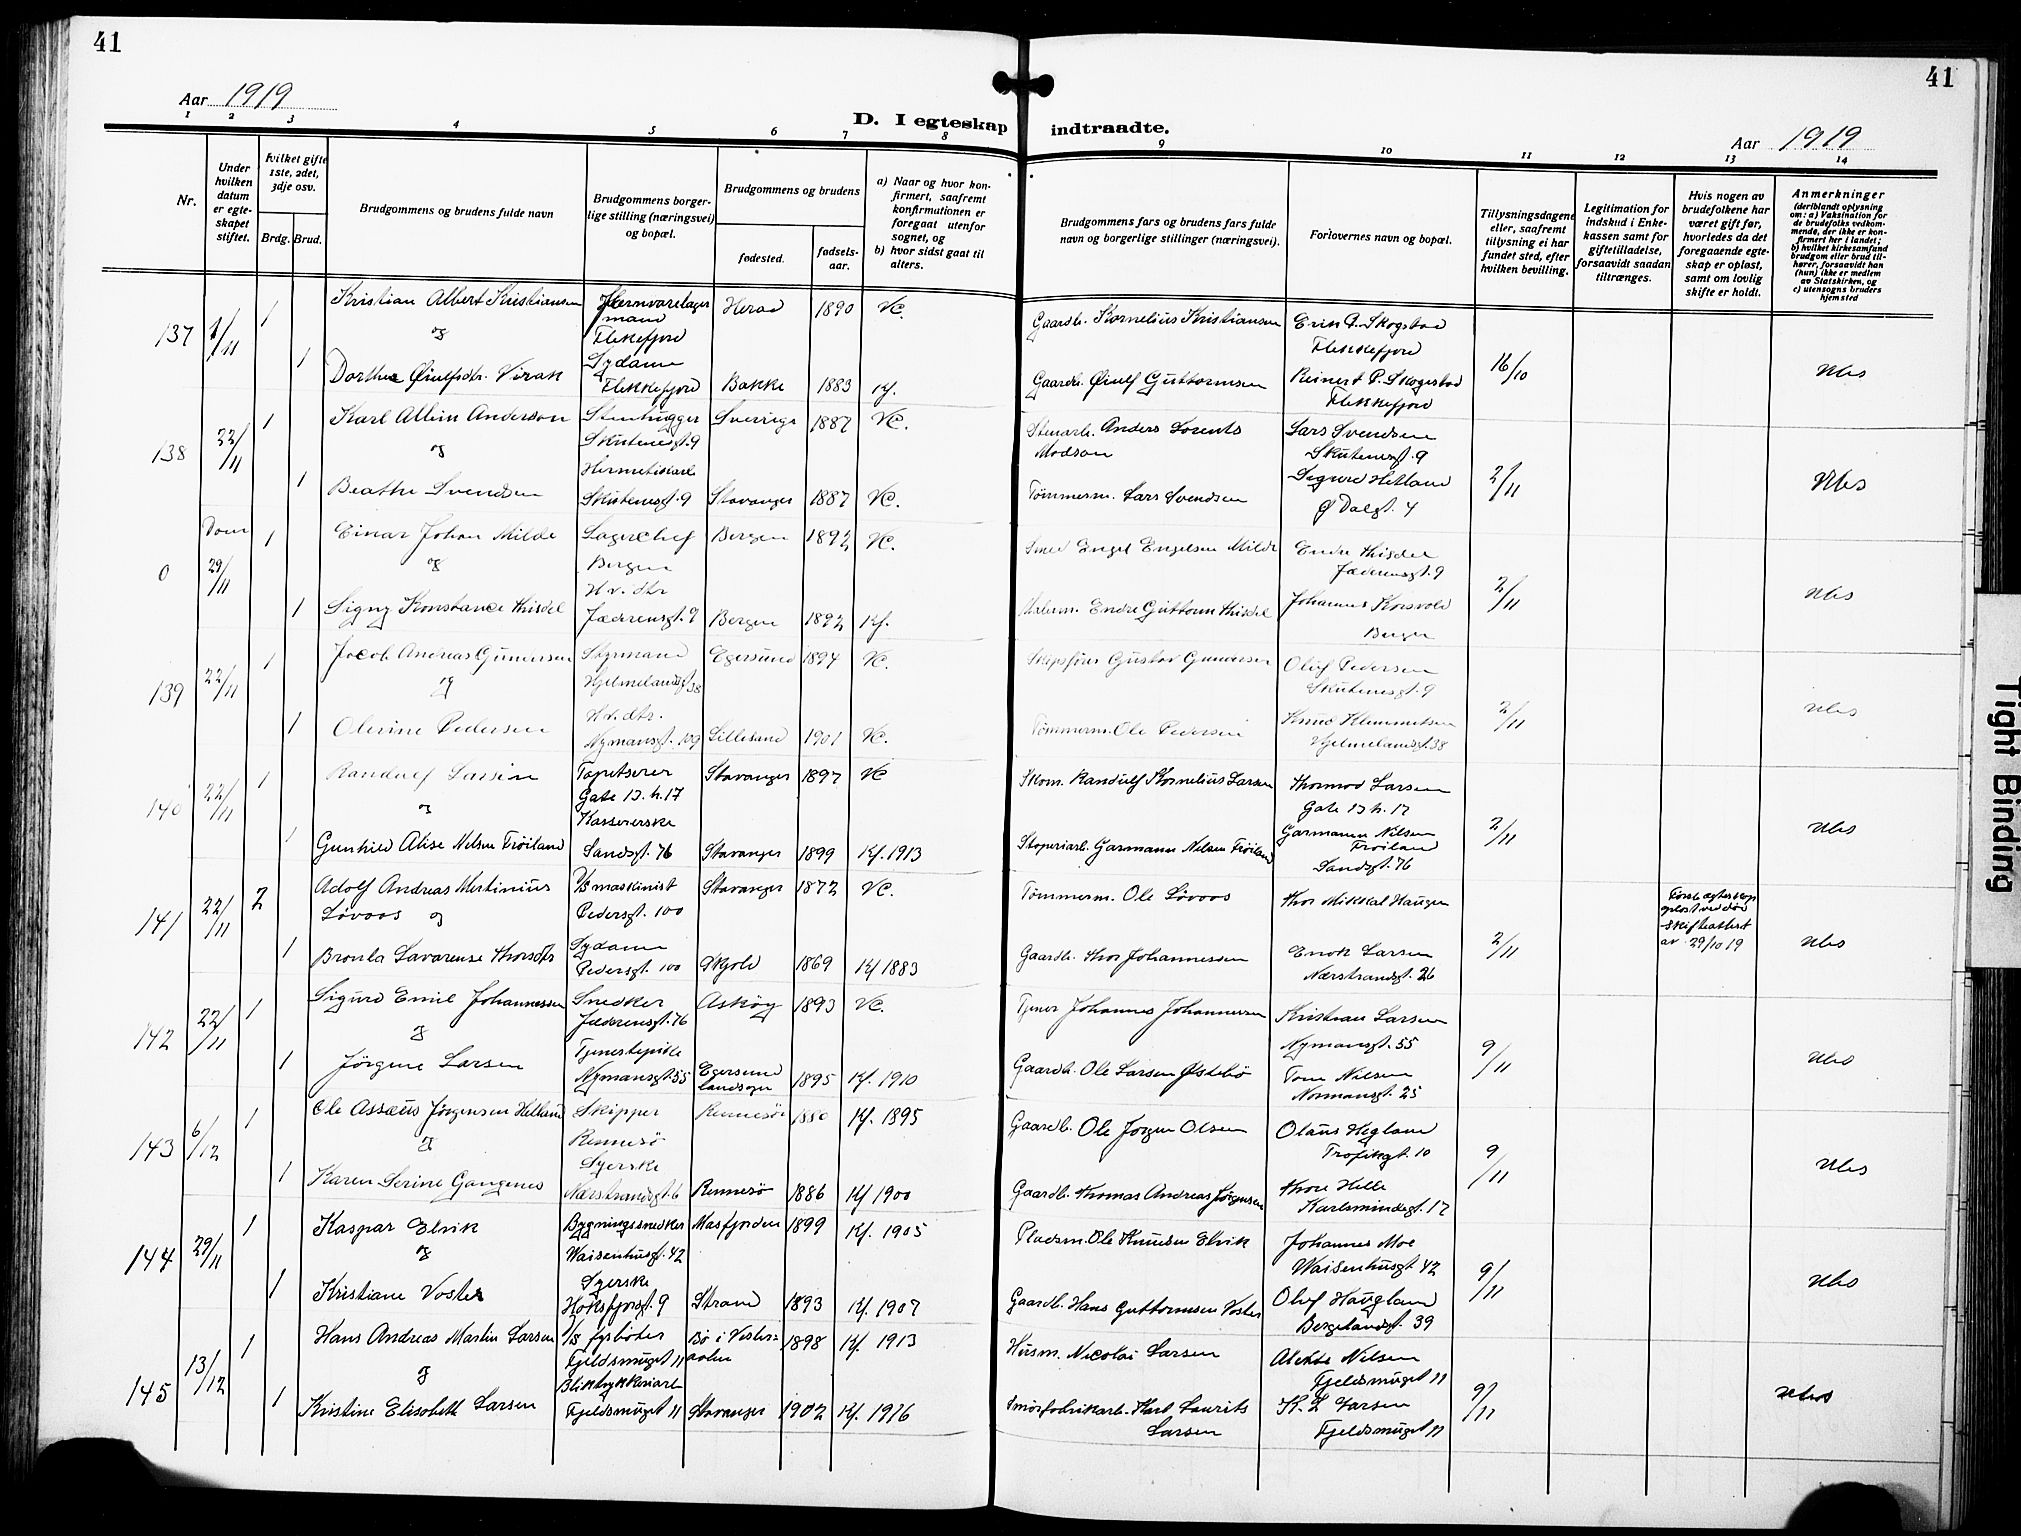 41
41
Aar 1919
D. I egteskap indtraadte.
Aar 1919
1 2 3 4 5 6 7 8 9 10 11 12 13 14
Nr.
Under hvilken datum er egteskapet stiftet.
hvilket gifte 1ste, 2det, 3dje osv.
Brdg. Brud.
Brudgommens og brudens fulde navn
Brudgommens borgerlige stilling (næringsvei) og bopæl.
Brudgommens og brudens
fødested.
fødselsaar.
a) Naar og hvor konfirmert, saafremt konfirmutionen er foregaat utenfor sognet, og
b) hvor sidst gaat til alters.
Brudgommens fars og brudens fars fulde navn og borgerlige stillinger (næringsvei).
Forlovernes navn og bopæl.
Tillysningsdagene eller, saafremt tillysning ei har fundet sted, efter hvilken bevilling.
Legitimation for indskud i Enkekassen samt for giftetilladelse, forsaavidt saadan tiltrænges.
Hvis nogen av brudefolkene har været gift før, hvorledes da det foregaaende egteskap er opløst, samt om lovlig skifte er holdt.
Anmerkninger
(deriblandt oplysning om: a) Vaksination for de brudefolks vedkommende, der ikke er konfirmert her i landet; b) hvilket kirkesamfund brudgom eller brud tilhører, forsaavidt han (hun) ikke er medlem av Statskirken, og c) utensogns bruders hjemsted
137 1/11 1 Kristian Albert Kristiansen Jernvarelager mand Flekkefjord Herad 1890 Gaardb. Kornelius Kristiansen Erik P. Skogstad Flekkefjord 16/10
og
1 Dorthea Øiulfsdtr. Virak Sydame Flekkefjord Bakke 1883 Kf. Gaardb. Øiulf Guttormsen Reinert P. Skogestad Flekkefjord
138 22/11 1 Karl Albin Anderson Stenhugger Skutenesgt. 9 Sverrige 1887 Stenarb. Anders Lorents Modson Lars Svendsen Skutenesgt. 9 2/11
og
1 Beathe Svendsen Hermetikarb Skutenesgt. 9 Stavanger 1887 Tømmerm. Lars Svendsen Sigurd Hetland Ø Dalgt. 4
0 29/11 1 Einar Johan Milde Lagerchef Bergen Bergen 1892 Smed Engel Engelsen Milde Jæderensgt. 9 2/11
og
1 Signy Konstance H.v. dtr Jæderensgt. 9 Bergen 1892 Kf. Malerm. Endre Guttorm Johannes Korsvold Bergen
139 22/11 1 Jacob Andreas Gundersen Styrmand Hjelmelandsgt. 38 Egersund 1894 Skipsfører Gustav Gundersen Oluf Pedersen Skutenesgt. 9 2/11
og
1 Olerine Pedersen H.v. dtr. Nymansgt. 109 Lillesand 1901 Tømmerm. Ole Pedersen Knud Klemmetsen Hjelmelandsgt. 38
140 22/11 1 Randulf Larsen Tapetserer Gate 13. h. 17 Stavanger 1897 Skom. Randulf Kornelius Larsen Thormod Larsen Gate 13 h. 17 2/11
og
1 Gunhild Alise Nelsen Trøiland Kassererske Sandsgt. 76 Stavanger 1899 Kf. 1913 Støperiarb. Garmann Nilsen Trøiland Garmann Nilsen Trøiland Sandsgt. 76
141 22/11 2 Adolf Andreas Martinius Løvaas og maskinist Pedersgt. 100 Stavanger 1872 Tømmerm. Ole Løvaas Thor Mikkal Haugen 2/11 av 29/10 19
1 Bronla Lavarense Thorsdtr Sydame Pedersgt. 100 Skjold 1869 Kf 1883 Gaardb. Thor Johannessen Enok Larsen Nærstrandsgt. 26
142 22/11 1 Sigurd Emil Johannessen Snedker Jæderensgt. 76 Askøy 1893 Tjener Johannes Johannessen Kristian Larsen Nymansgt. 55 9/11
og
1 Jørgine Larsen Tjenestepike Nymansgt. 55 Egersund landsogn 1895 Kf. 1910 Gaardb. Ole Larsen Østebø Tom Nilsen Normansgt. 25
143 6/12 1 Ole Asseus Jørgensen Helland Skipper Rennesø Rennesø 1880 Kf. 1895 Gaardb. Ole Jørgen Olsen Olaus Hegland Trofikgt. 10 9/11
og
1 Karen Serine Gangenes Syerske Nærstrandsgt. 6 Rennesø 1886 Kf 1900 Gaardb. Thomas Andreas Jørgensen Thore Helle Karlsmindegt. 17
144 29/11 1 Kaspar Elvik Bygningssnedker Waisenhusgt. 42 Masfjorden 1899 Kf. 1905 Pladsm. Ole Knudsen Elvik Johannes Moe Waisenhusgt 42 9/11
og
1 Kristiane Voster Syerske Høksfjorgt. 9 Strand 1893 Kf. 1907 Gaardb. Hans Guttormsen Voster Oluf Haugland Bergelandsgt. 39
145 13/12 1 Hans Andreas Martin Larsen fyrbøter Fjeldsmuget 11 Bø i Vesteraalen 1898 Kf. 1913 Husm. Nicolai Larsen Alekse Nilsen Fjeldsmuget 11 9/11
og
1 Kristine Elisabeth Larsen Bliktrykkeriarb Fjeldsmuget 11 Stavanger 1902 Kf. 1916 Smørfabrikarb. Karl Laurits Larsen K. L Larsen Fjeldsmuget 11
Tight Binding